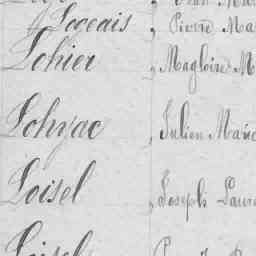 Logeais, Pierre Ma
Lohier, Magloire M
Lohyac, Julien Marie
Loisel, Joseph Laur
Loisel